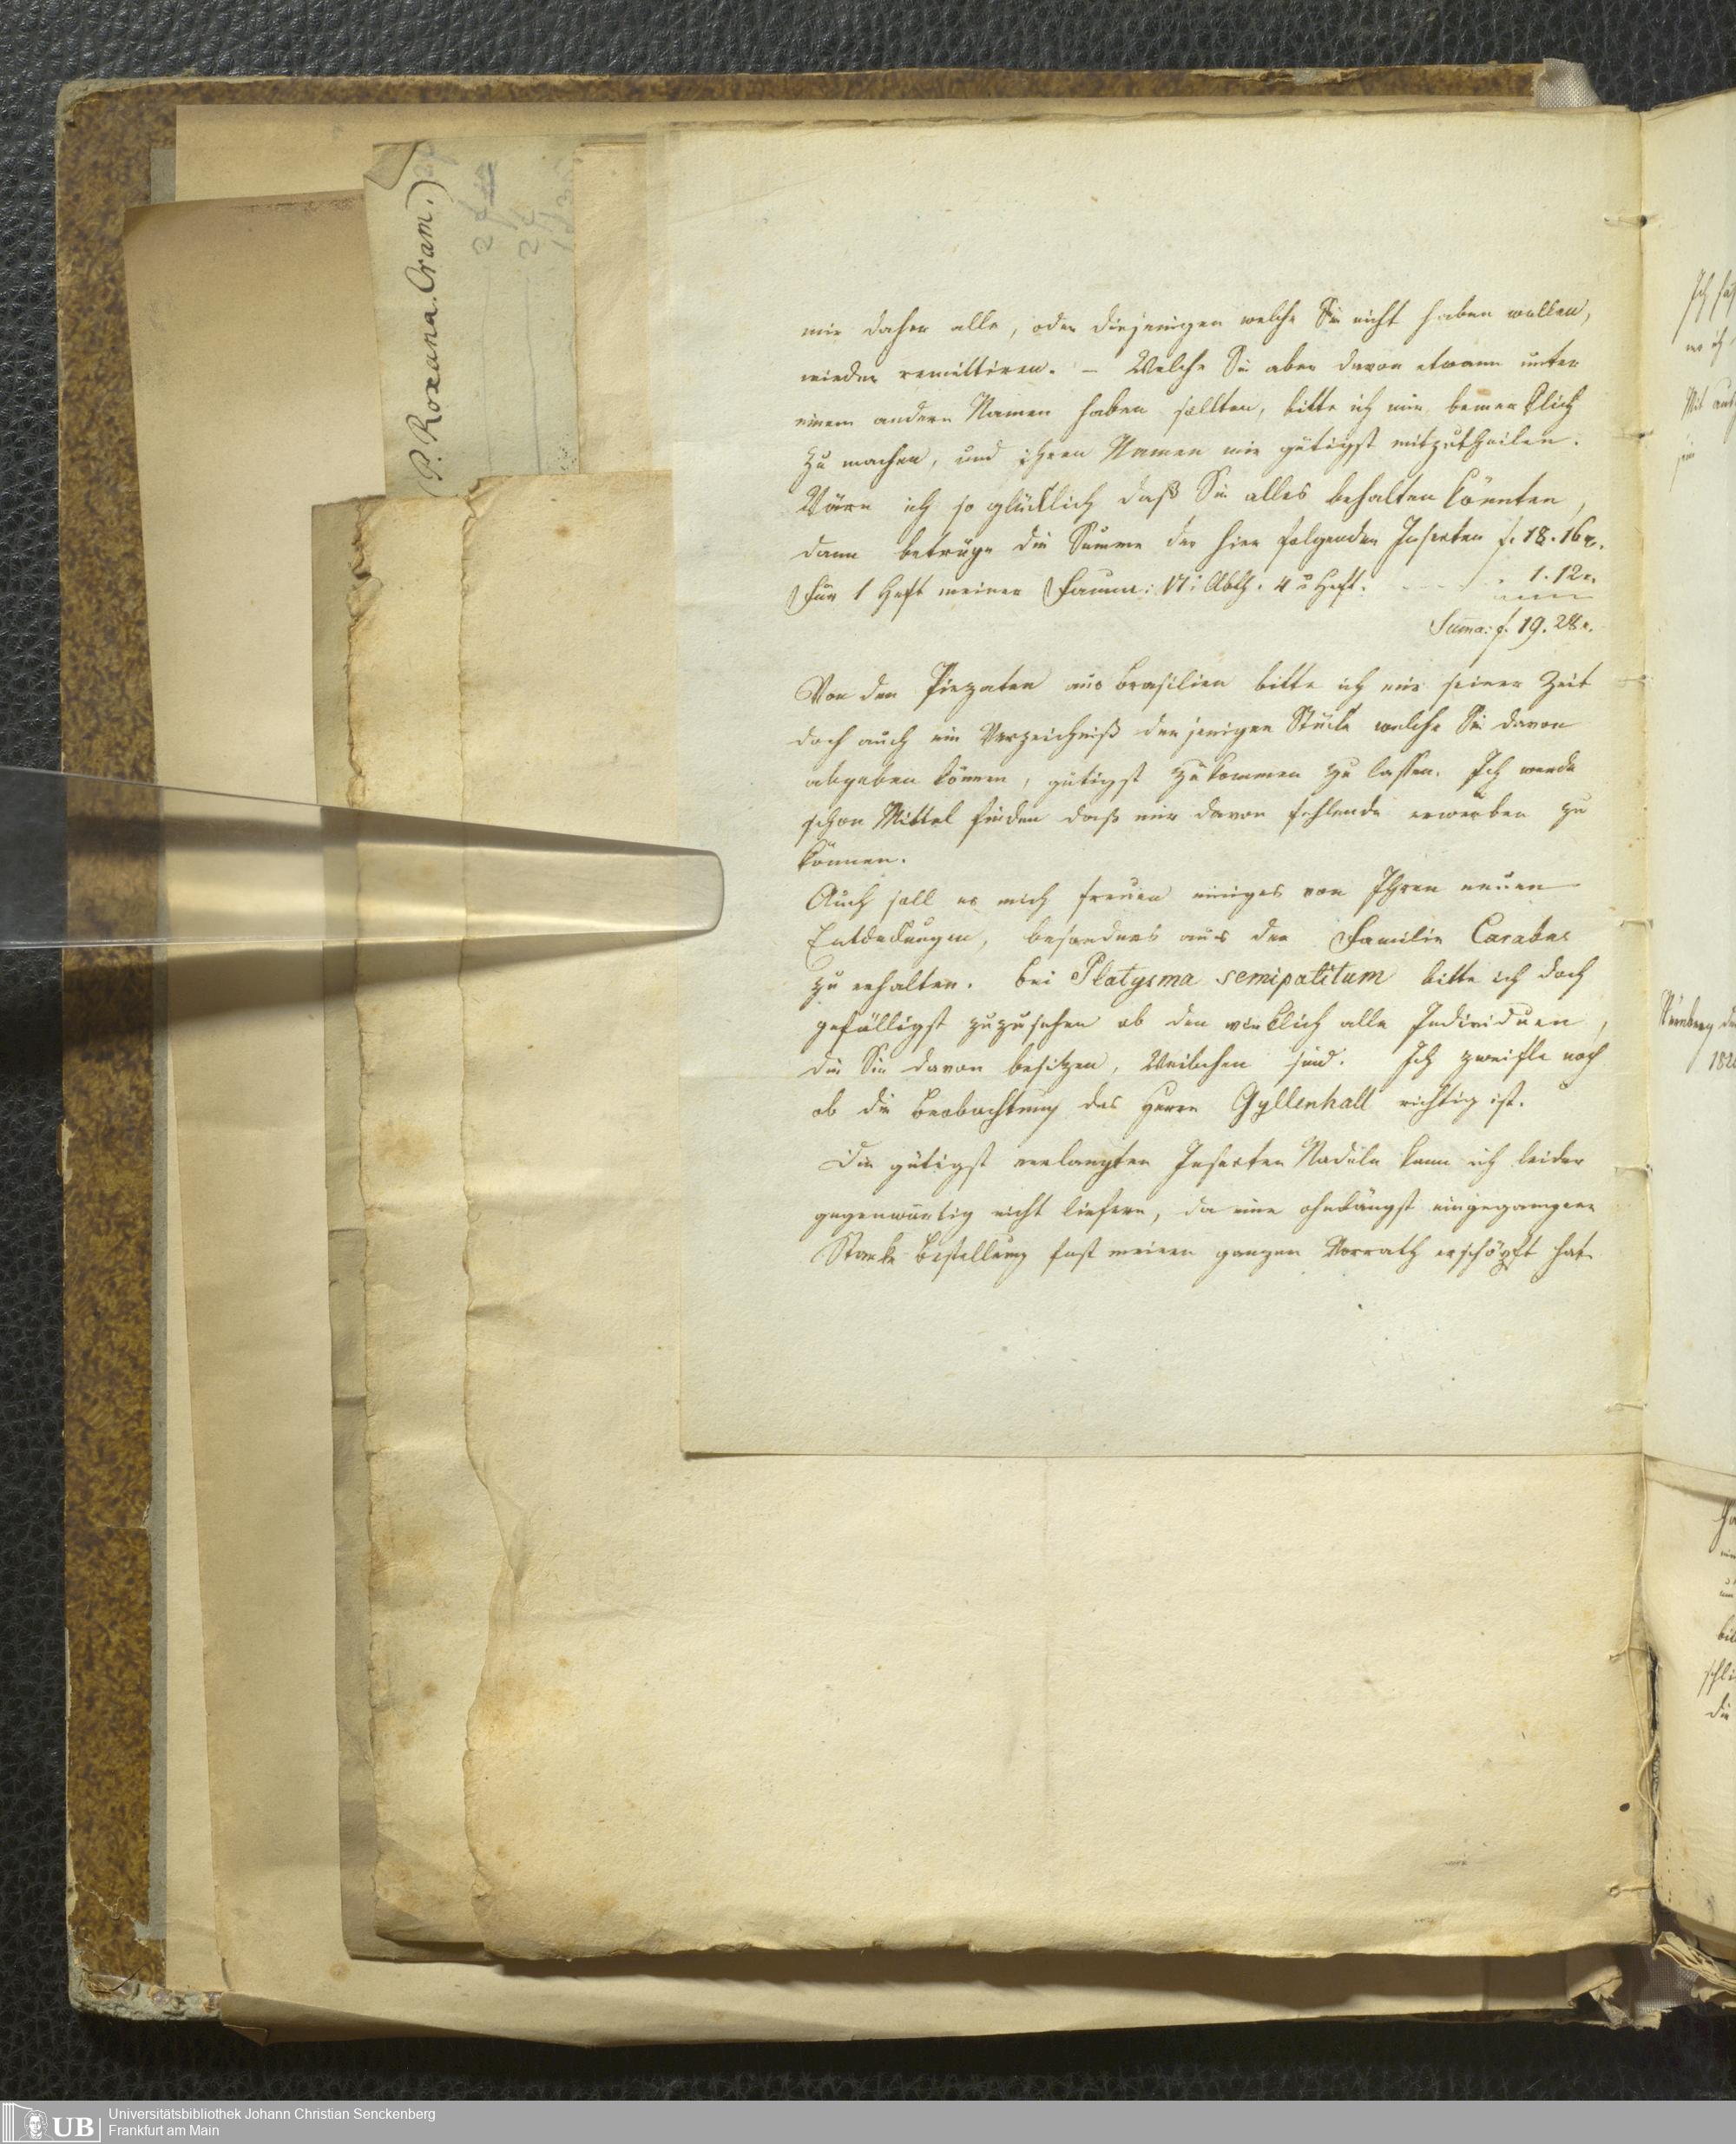 P. Roxana. Cram.)
mir daher alle, oder diejenigen welche Sie nicht haben wollen,
wieder remittiren. – Welche Sie aber davon etwann unter
einem andern Namen haben sollten, bitte ich mir bemerklich
zu machen, und ihren Namen mir gütigst mitzutheilen.
Wäre ich so glücklich daß Sie alles behalten könnten,
dann betrüge die Summe der hier folgenden Insecten f. 18. 16 x.
Für 1 Heft meiner Fauna: VI: Abth. 4s Heft. - - - 1. 12 x.
Suma: f. 19. 28 x.
Von den Piezaten aus Brasilien bitte ich mir seiner Zeit
doch auch ein Verzeichniß derjenigen Stücke welche Sie davon
abgeben können, gütigst zukommen zu lassen. Ich werde
schon Mittel finden daß mir davon fehlende erwerben zu
können.
Auch soll es mich freuen einiges von Ihren neuen
Entdeckungen, besonders aus der Familie Carabus
zu erhalten. Bei Platysma semipatitum bitte ich doch
gefälligst zuzusehen ob den wirklich alle Individuen,
die Sie davon besitzen, Weibchen sind. Ich zweifle noch
ob die Beobachtung des Herrn Gyllenhall richtig ist.
Die gütigst verlangten Insecten Nadeln kann ich leider
gegenwärtig nicht liefern, da eine ohnlängst eingegangene
Starke Bestellung fast meinen ganzen Vorrath erschöpft hat
Nürnberg
Universitätsbibliothek Johann Christian Senckenberg
Frankfurt am Main
UB